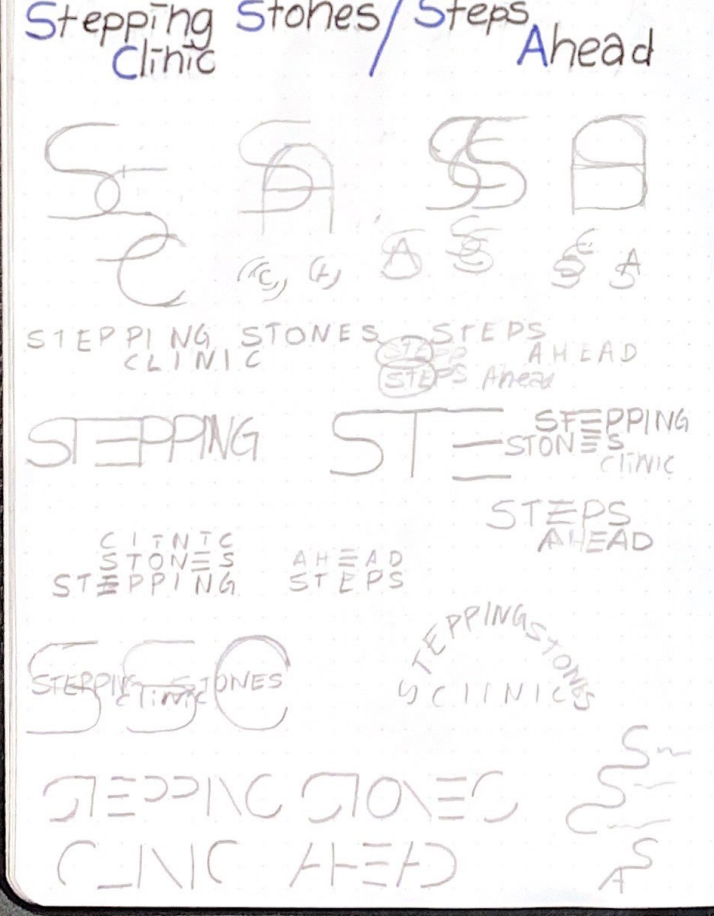 Stepping Stones / Steps
Clinic Ahead
S S C
S A
S S
A S
C
A
S S
S S C
S A
STEPPING STONES
CLINIC
STEPS
AHEAD
STEPP
STEPS Ahead
STEPPING
STE
STEPPING
STONES
Clinic
STEPS
AHEAD
CLINIC
STONES
STEPPING
AHEAD
STEPS
S S C
STEPPING STONES
Clinic
STEPPING STONES
CLINIC
STEPPING STONES
CLINIC AHEAD
S
S
C
S
A